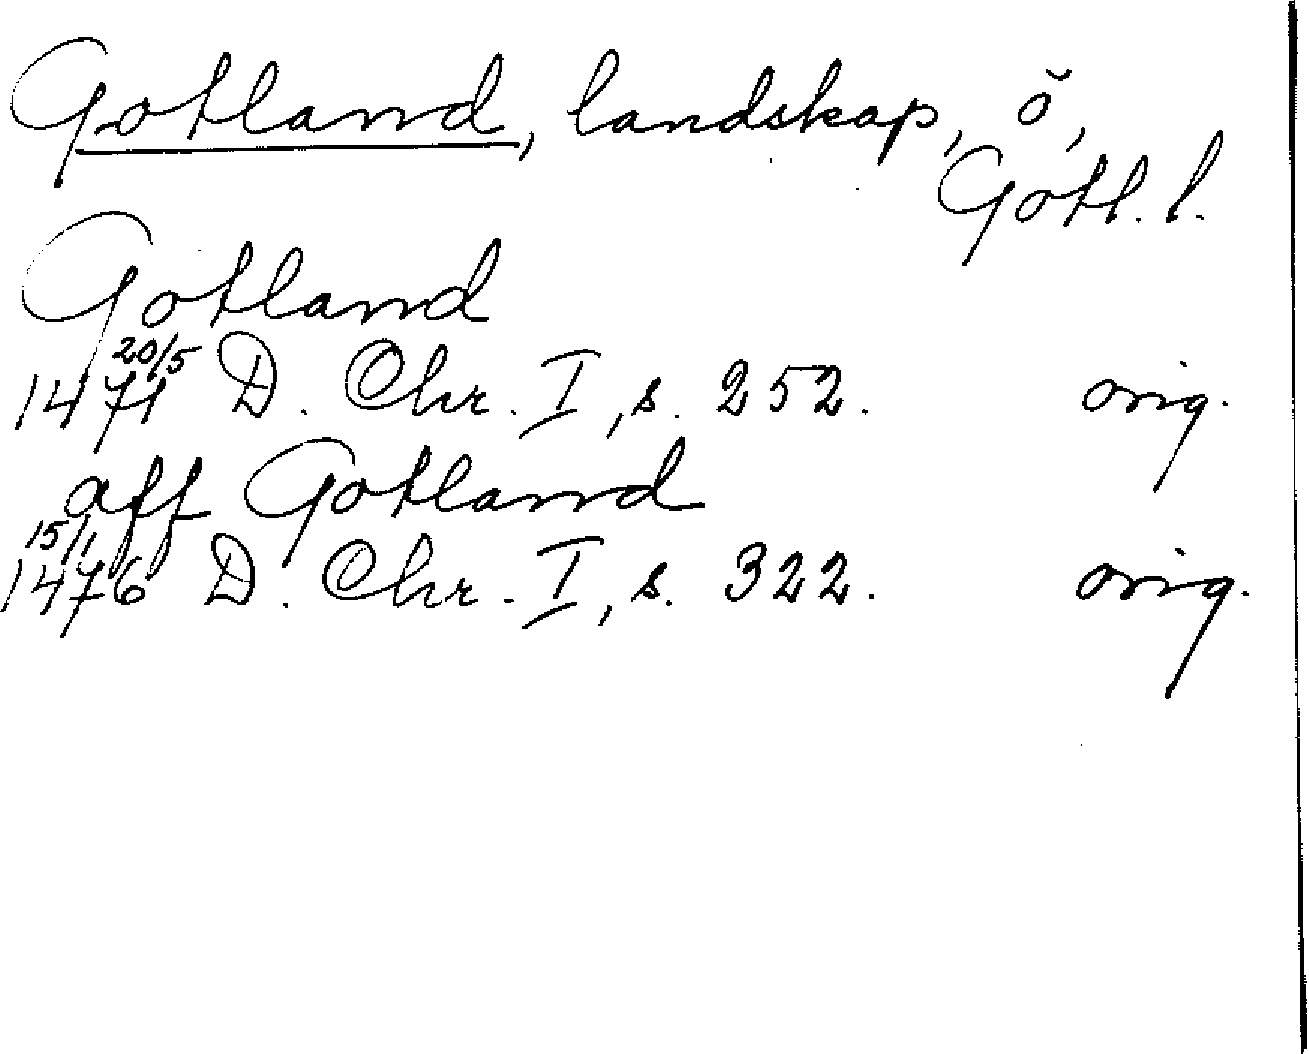 Gotland, landskap, ö,
Gotl. l.
Gotland
20/5
1471 D. Chr. I, s. 252. orig.
aff Gotland
15/1
1476 D. Chr. I, s. 322. orig.